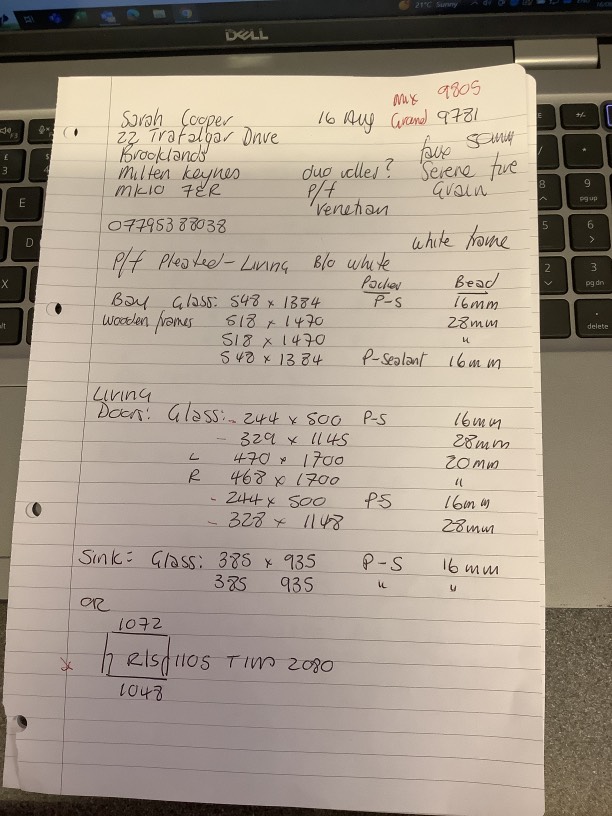 DELL
21°C Sunny
mix 9805
Sarah Cooper 16 Aug Grand 9781
22 Trafalgar Drive faux 50mm
Brooklands duo roller? Serene fine
Milten Keynes P/f Grain
MK10 7ER Venetian
white frame
P/f Pleated - Living B/o white
Pocket Bead
Bay Glass: 548 x 1384 P-S 16mm
wooden frames 518 x 1470 28mm
518 x 1470 "
548 x 1384 P-Sealant 16mm
Living
Doors: Glass: - 244 x 500 P-S 16mm
- 329 x 1145 28mm
L 470 x 1700 20mm
R 468 x 1700 "
- 244 x 500 PS 16mm
- 328 x 1148 28mm
Sink = Glass: 385 x 935 P-S 16mm
385 935 " "
OR
1072
x R/S 1105 2080
1048